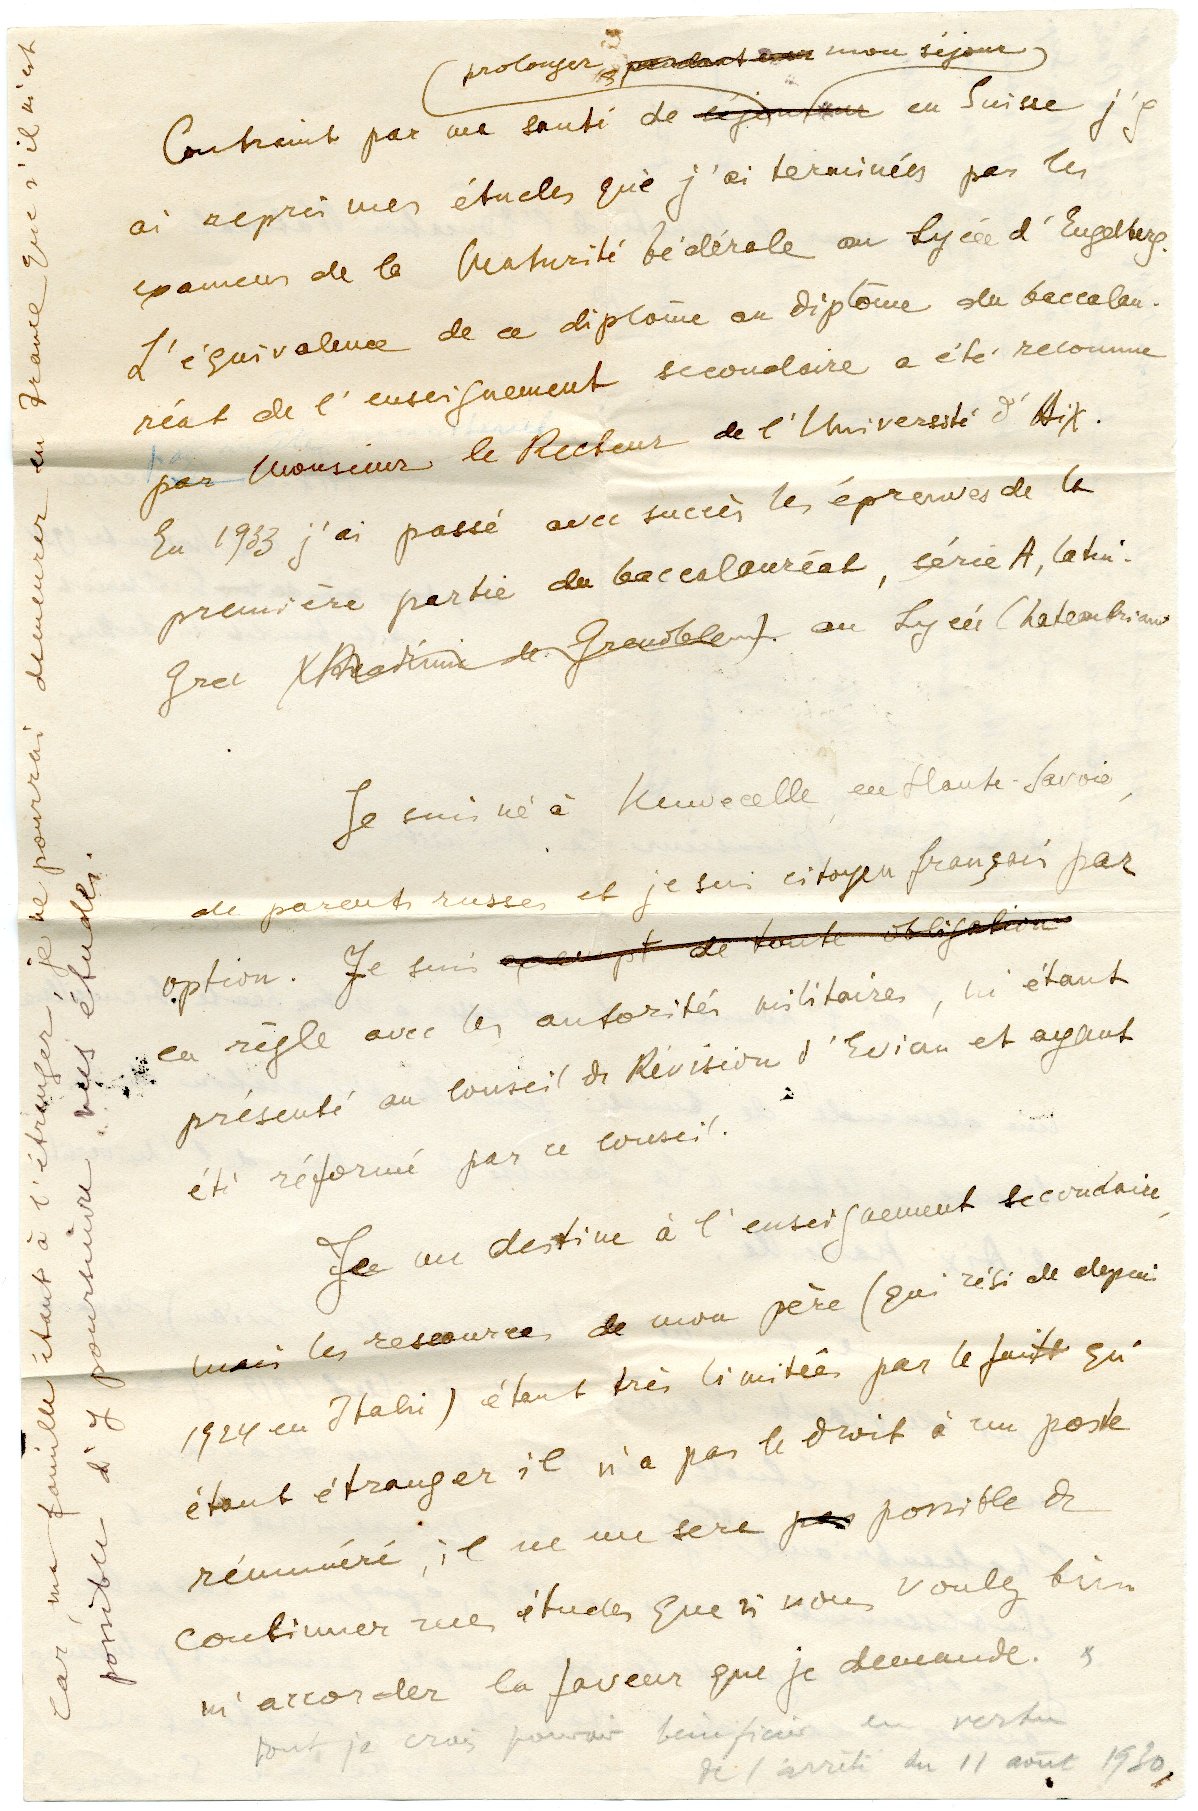 prolonger pendant mon séjour
Contraint par ma santé de séjourner en Suisse j'y
ai repris mes études que j'ai terminées par les
examens de la Maturité fédérale au Lycée d'Engelberg.
L'équivalence de ce diplôme au diplôme du baccalau-
réat de l'enseignement secondaire a été reconnue
par Monsieur le Recteur de l'Université d'Aix.
En 1933 j'ai passé avec succès les épreuves de la
première partie du baccalauréat, série A, latin-
grec (Académie de Grenoble). au Lycée Chateaubriand
Je suis né à Neuvecelle, en Haute-Savoie,
de parents russes et je suis citoyen français par
option. Je suis exempt de toute obligation
en règle avec les autorités militaires, m'étant
présenté au Conseil de Révision d'Evian et ayant
été réformé par ce Conseil.
Je me destine à l'enseignement secondaire,
mais les ressources de mon père (qui réside depuis
1924 en Italie) étant très limitées par le fait qu'
étant étranger il n'a pas le droit à un poste
rémunéré, il ne me sera pas possible de
continuer mes études que si vous voulez bien
m'accorder la faveur que je demande.
dont je crois pouvoir bénéficier en vertu
de l'arrêté du 11 août 1930,
Car, ma famille étant à l'étranger, je ne pourrai demeurer en France que s'il m'est
possible d'y poursuivre mes études.